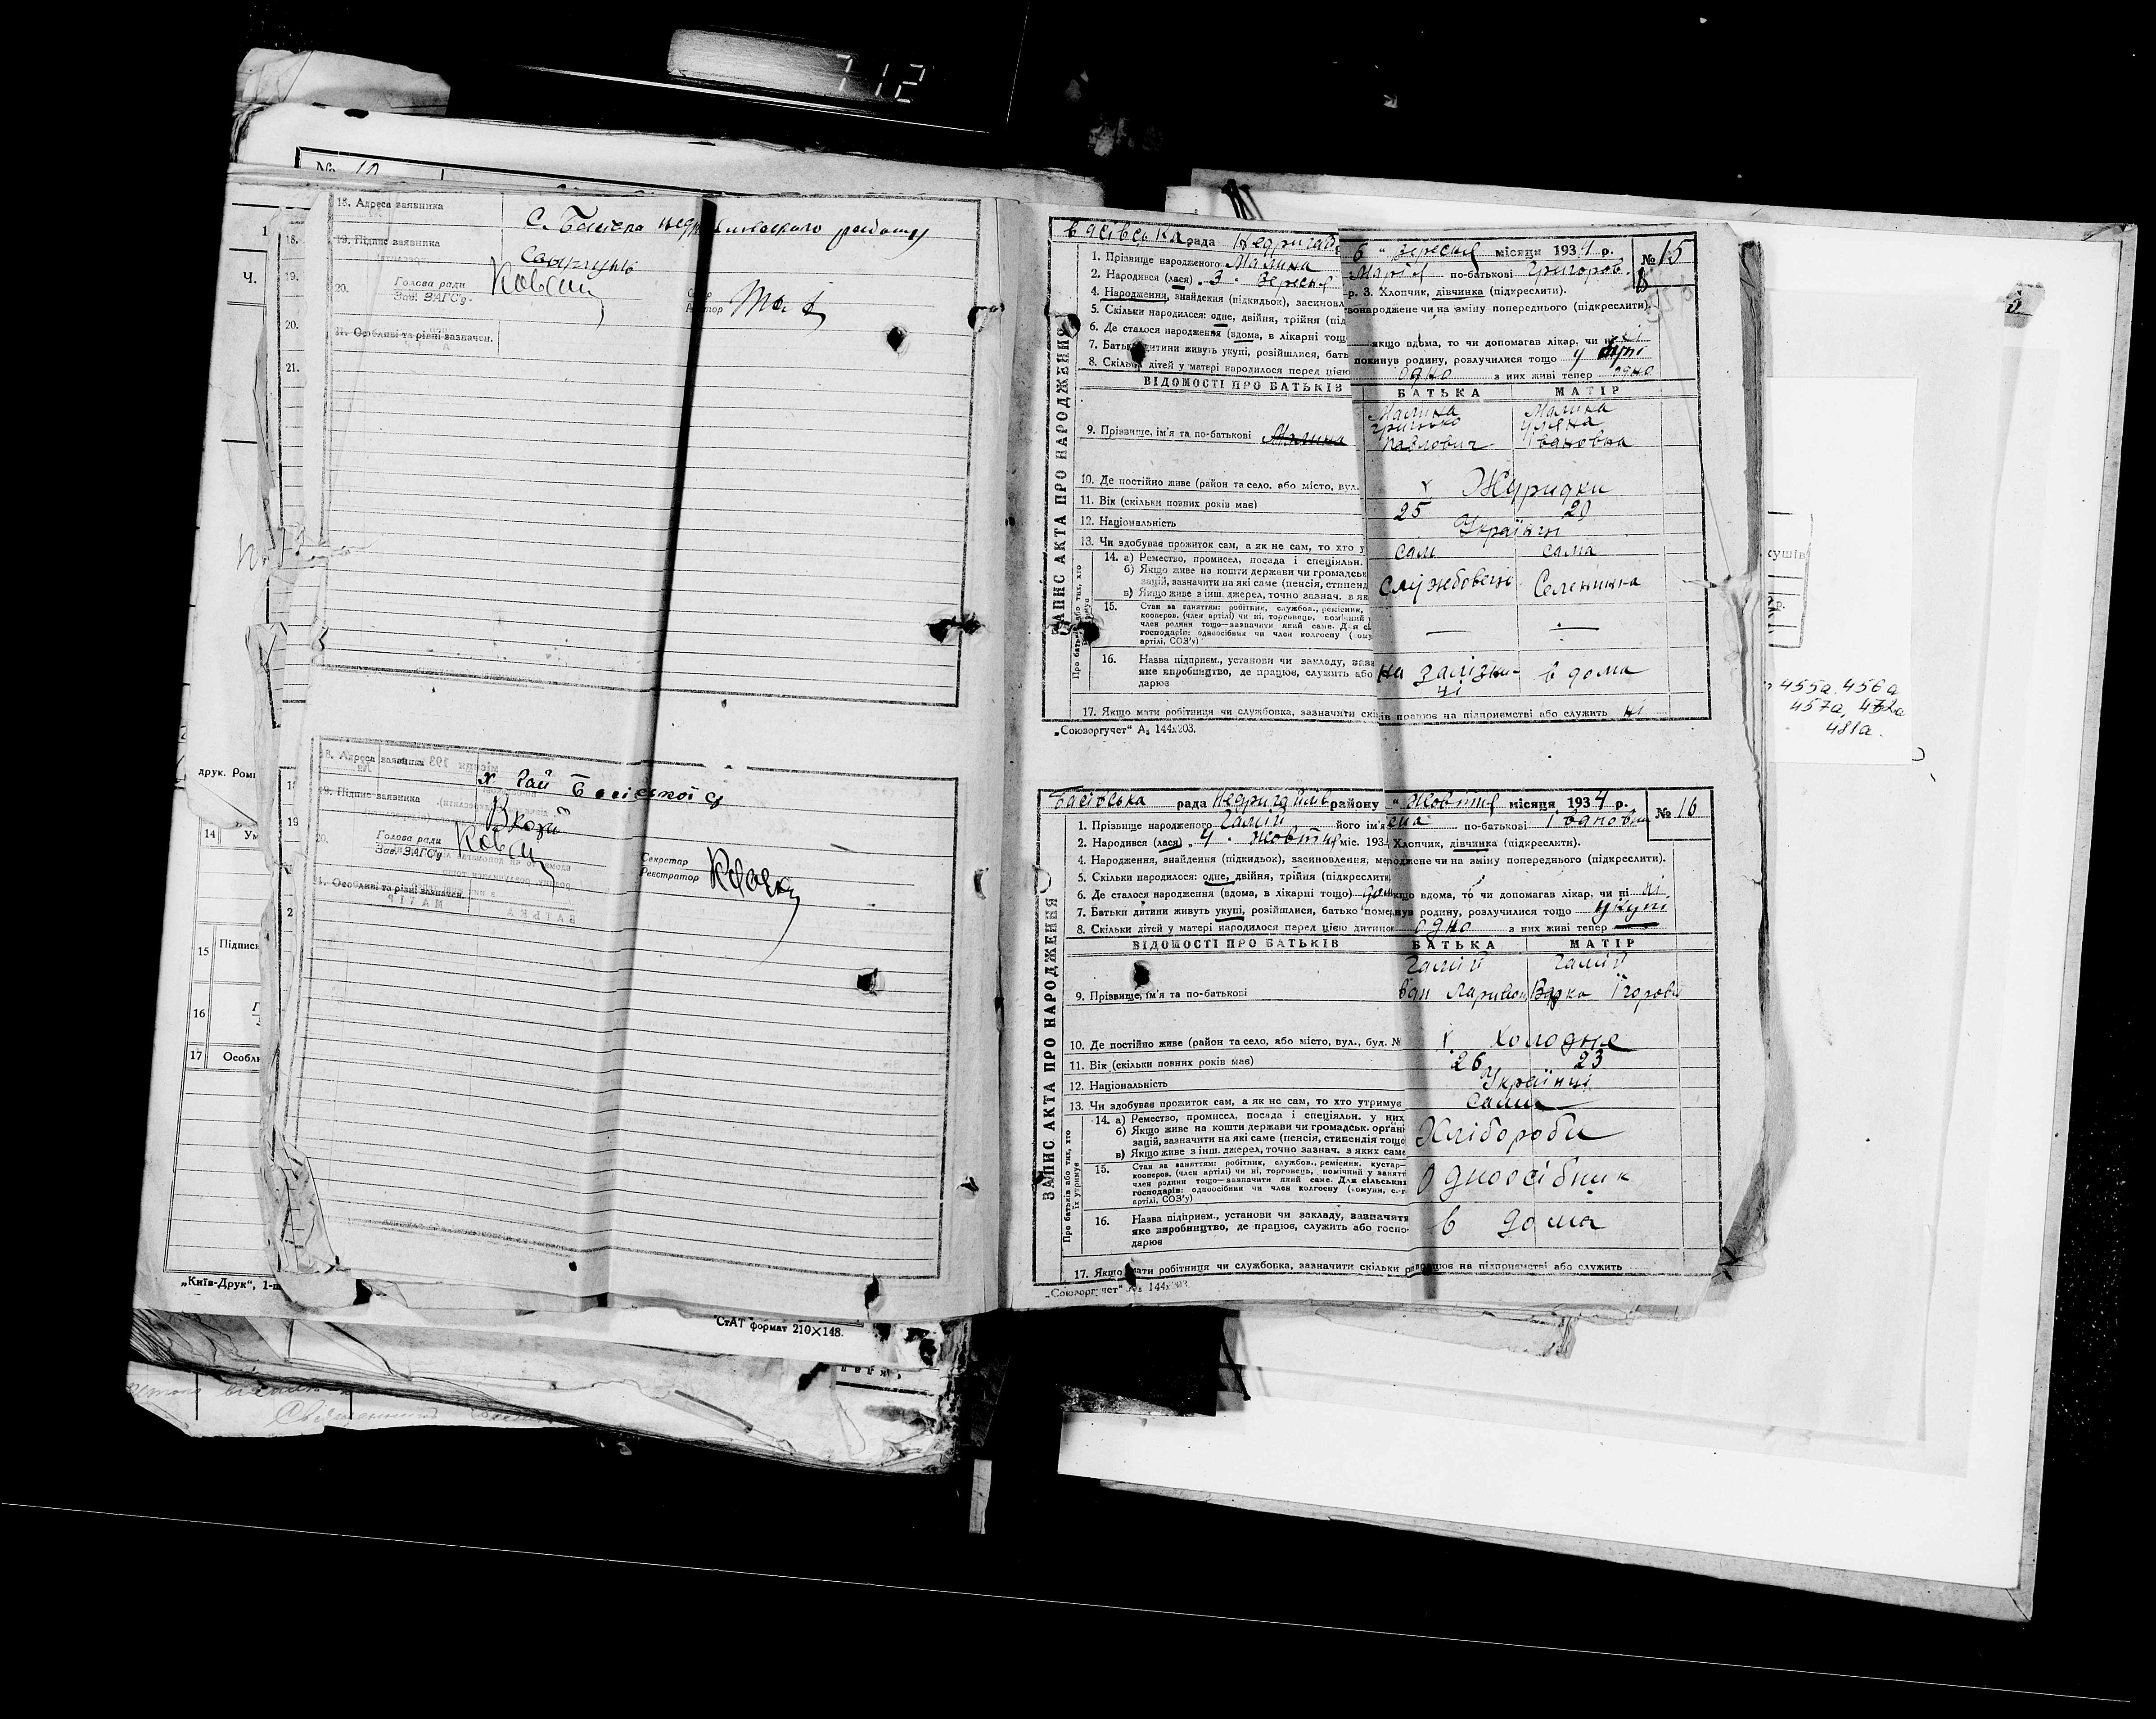 712
№ 10
18. Адреса заявника
с. Басівка
19. Підпис заявника
20. Голова ради
Зав. ЗАГС'у
21. Особливі та різні зазначен.
18. Адреса заявника х. Гай
19. Підпис заявника
20. Голова ради
Зав. ЗАГС'у
Секретар
Реєстратор
21. Особливі та різні зазначен.
друк. Ром
14
15 Підписи
16
17 Особли
„Київ-Друк“, 1-
СтАТ формат 210×148.
ЗАПИС АКТА ПРО НАРОДЖЕННЯ
Басівська рада
6 " вересня місяця 1934 р. № 15
1. Прізвище народженого Малина
Марія по-батькові Григоров.
2. Народився (лася) „ 3 " вересня
р. 3. Хлопчик, дівчинка (підкреслити).
4. Народження, знайдення (підкидьок), засиновл
вонароджене чи на зміну попереднього (підкреслити).
5. Скільки народилося: одне, двійня, трійня (під
6. Де сталося народження (вдома, в лікарні тощ
якщо вдома, то чи допомагав лікар, чи ні ні
7. Батьки дитини живуть укупі, розійшлися, бать
покинув родину, розлучилися тощо укупі
8. Скільки дітей у матері народилося перед цією
одно з них живі тепер одно
ВІДОМОСТІ ПРО БАТЬКІВ БАТЬКА МАТІР
9. Прізвище, ім'я та по-батькові Малина
Малина Грицько Павлович
Малина Уляна Івановна
10. Де постійно живе (район та село, або місто, вул.
х Журидки
11. Вік (скільки повних років має) 25 20
12. Національність Українці
13. Чи здобуває прожиток сам, а як не сам, то хто у
сам сама
Про батьків або тих, хто їх утримує
14. а) Ремество, промисел, посада і спеціяльн.
б) Якщо живе на кошти держави чи громадськ
зацій, зазначити на які саме (пенсія, стипенд
в) Якщо живе з інш. джерел, точно зазнач. з як
службовець Селянинка
15. Стан за заняттям: робітник, службов., ремісник,
кооперов. (член артілі) чи ні, торговець, помічний
член родини тощо—зазначити який саме. Для сі
господарів: одноосібник чи член колгоспу (кому
артілі, СОЗ'у)
16. Назва підприєм., установи чи закладу, заз
яке виробництво, де працює, служить або
дарює
на залізниці в дома
17. Якщо мати робітниця чи службовка, зазначити скільки працює на підприємстві або служить ні
„Союзоргучет“ А₅ 144х203.
ЗАПИС АКТА ПРО НАРОДЖЕННЯ
Басівська рада Недригайлів району " жовтня місяця 1934 р. № 16
1. Прізвище народженого Галій його ім'я по-батькові Івановна
2. Народився (лася) „ 4 " жовтня міс. 193 Хлопчик, дівчинка (підкреслити).
4. Народження, знайдення (підкидьок), засиновлення, ме роджене чи на зміну попереднього (підкреслити).
5. Скільки народилося: одне, двійня, трійня (підкреслити
6. Де сталося народження (вдома, в лікарні тощо) дома якщо вдома, то чи допомагав лікар, чи ні ні
7. Батьки дитини живуть укупі, розійшлися, батько поме нув родину, розлучилися тощо укупі
8. Скільки дітей у матері народилося перед цією дитиною одно з них живі тепер —
ВІДОМОСТІ ПРО БАТЬКІВ БАТЬКА МАТІР
Галій Галій
9. Прізвище, ім'я та по-батькові
10. Де постійно живе (район та село, або місто, вул., буд. №
х Холодне
11. Вік (скільки повних років має) 26 23
12. Національність Українці
13. Чи здобуває прожиток сам, а як не сам, то хто утримує
сами
Про батьків або тих, хто їх утримує
14. а) Ремество, промисел, посада і спеціяльн. у них
б) Якщо живе на кошти держави чи громадськ. органі
зацій, зазначити на які саме (пенсія, стипендія тощо
в) Якщо живе з інш. джерел, точно зазнач. з яких саме
Хлібороби
15. Стан за заняттям: робітник, службов., ремісник, кустар—
кооперов. (член артілі) чи ні, торговець, помічний у занятт
член родини тощо—зазначити який саме. Для сільських
господарів: одноосібник чи член колгоспу (комуни, с.-г.
артілі, СОЗ'у)
Одноосібник
16. Назва підприєм., установи чи закладу, зазначити
яке виробництво, де працює, служить або госпо-
дарює
в дома
17. Якщо мати робітниця чи службовка, зазначити скільки працює на підприємстві або служить
„Союзоргучет“ А₅ 144х203.
455а, 456а
457а, 472а
481а.